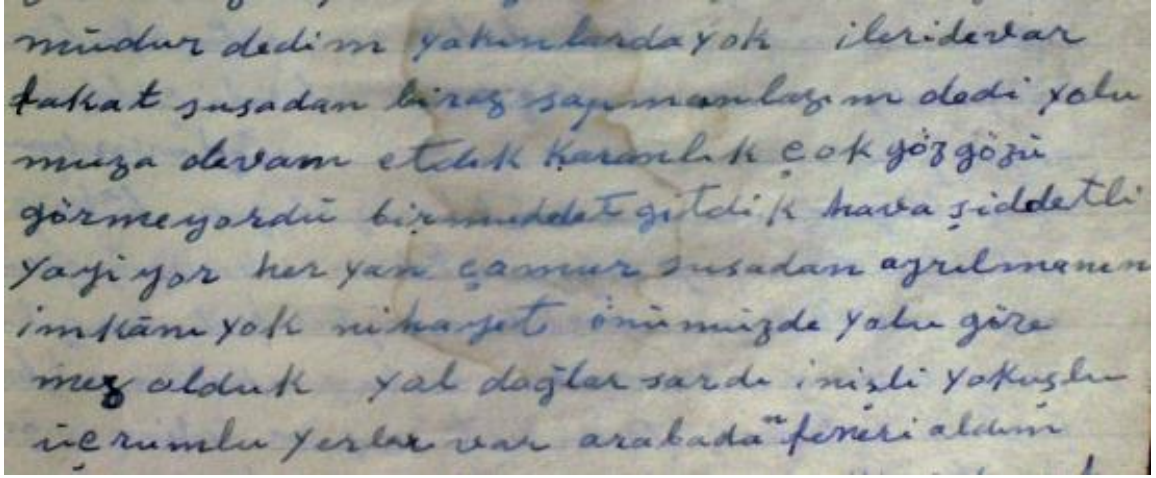 müdür dedim yakınlarda yok ileride var
fakat şusadan biraz sapmanlazım dedi yolu
muza devam etdik karanlık çok göz gözü
görmeyordü birmüddet gitdik hava şiddetli
yağiyor her yan çamur şusadan ayrılmanın
imkânı yok nihayet önümüzde yolu göre
mez olduk yol dağlar sardı inişli yokuşlu
üçrumlu yerler var arabada"n feneri aldım